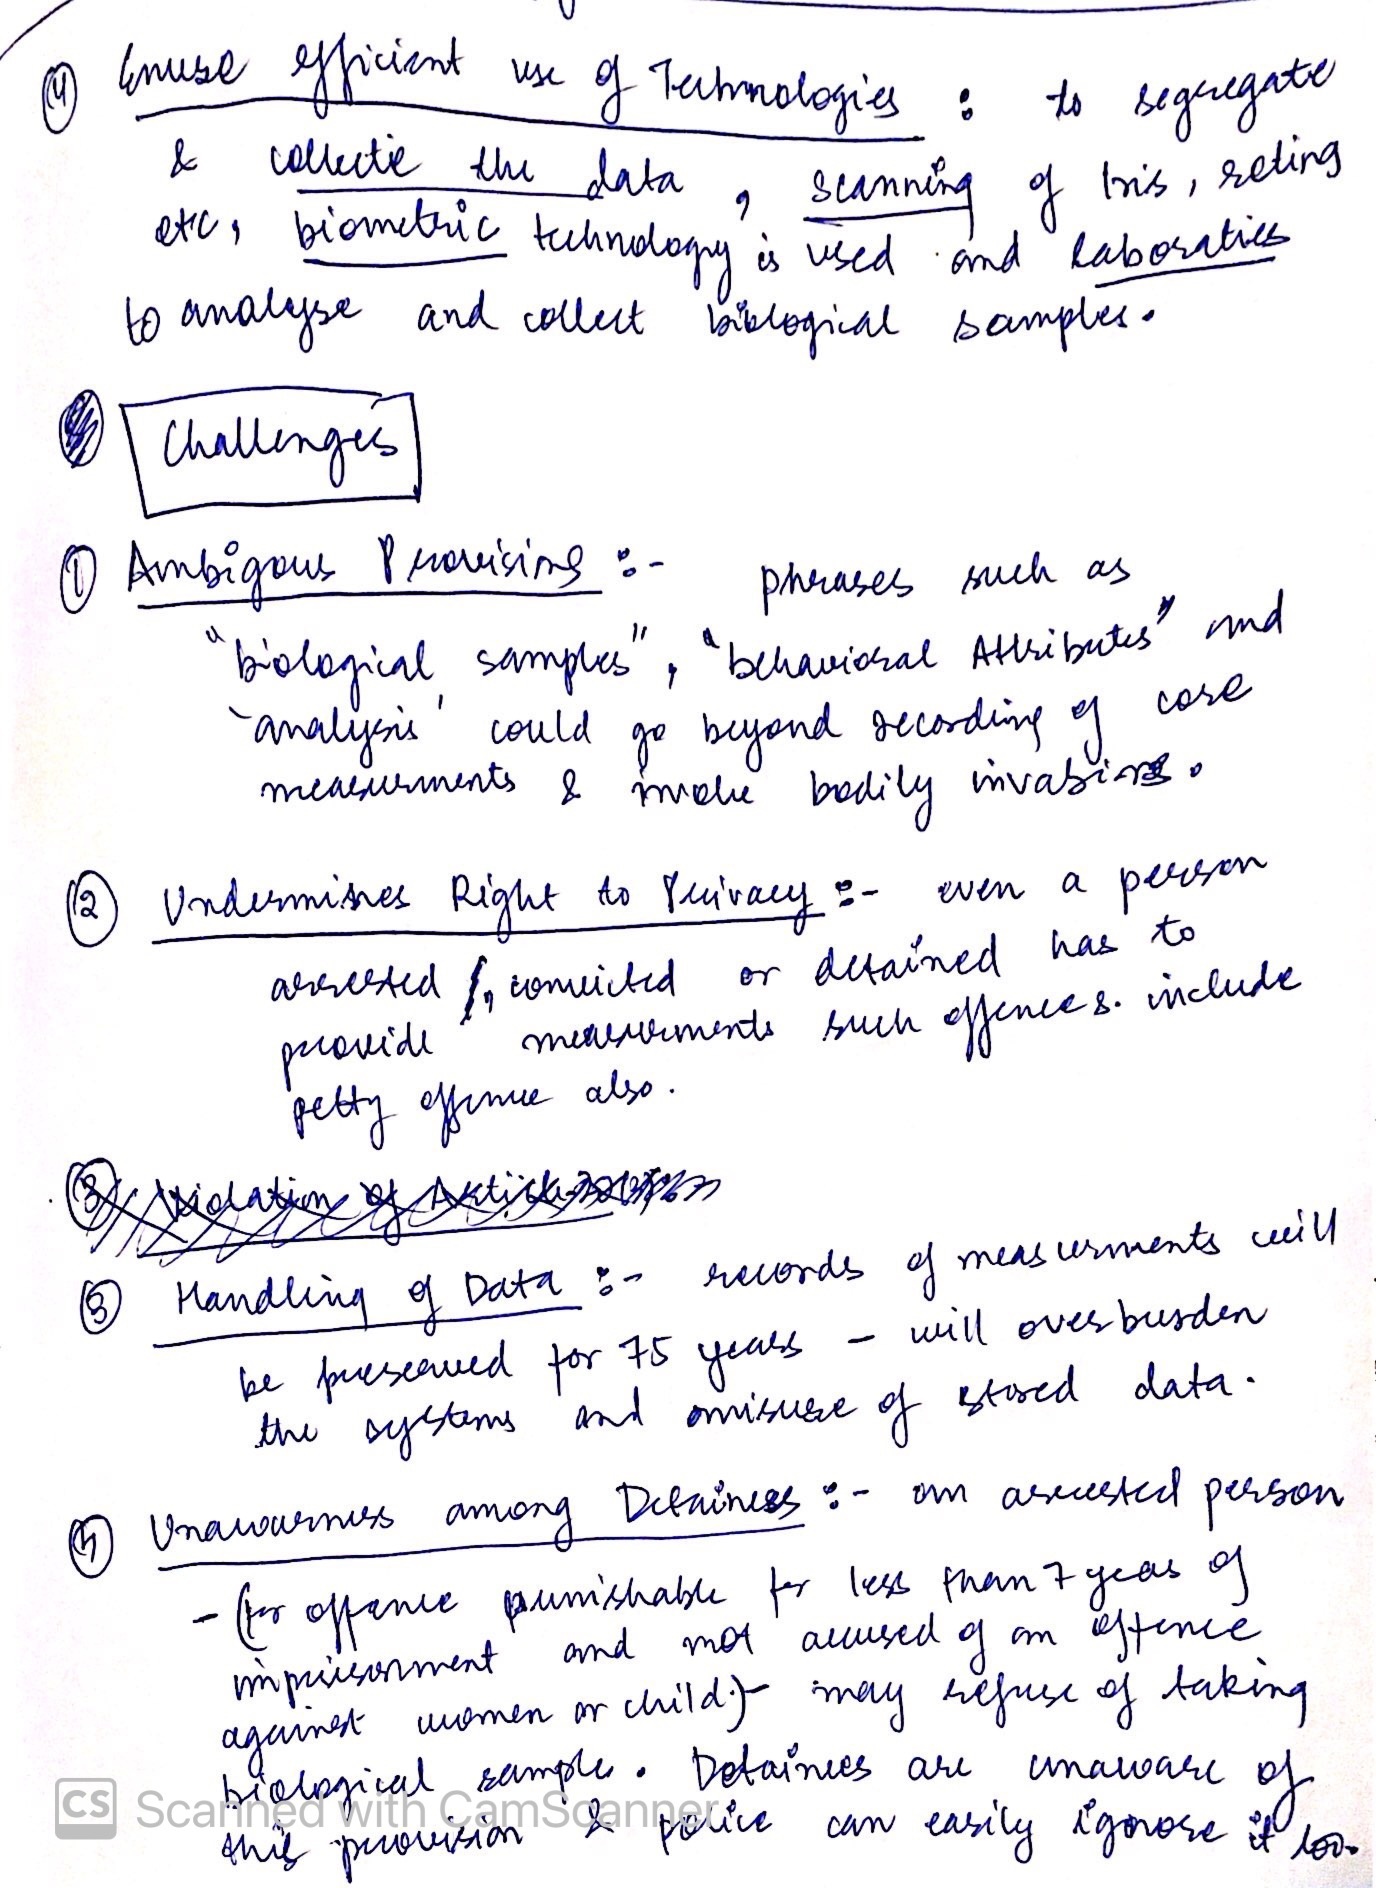 ④ Ensure efficient use of Technologies : to segregate
& collectie the data, scanning of Iris, reting
etc, biometric technology is used and Laboraties
to analyse and collect biological samples.
Challenges
① Ambigous Provisions :- phrases such as
"biological samples", "behavioral Attributes" and
'analysis' could go beyond recording of core
measurments & invoke bodily invasions.
② Undermines Right to Privacy :- even a person
arrested, convicted or detained has to
provide measurments such offences. include
petty offence also.
③ Violation of Article
③ Handling of Data :- records of measurments will
be preserved for 75 years - will overburden
the systems and misuse of stored data.
④ Unawarness among Detainess :- an arrested person
- (for offence punishable for less than 7 yeas of
imprisonment and not accused of an offence
against women or child.)- may refuse of taking
biological sample. Detainees are unaware of
this provision & police can easily ignore it too.
CS Scanned with CamScanner